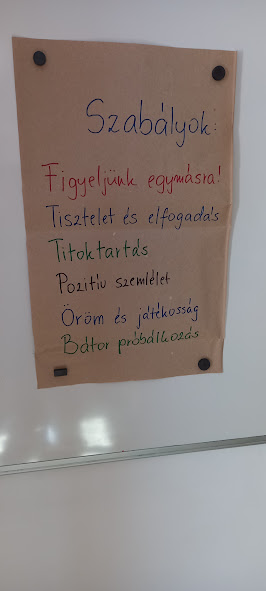 Szabályok:
Figyeljünk egymásra!
Tisztelet és elfogadás
Titoktartás
Pozitív szemlélet
Öröm és játékosság
Bátor próbálkozás